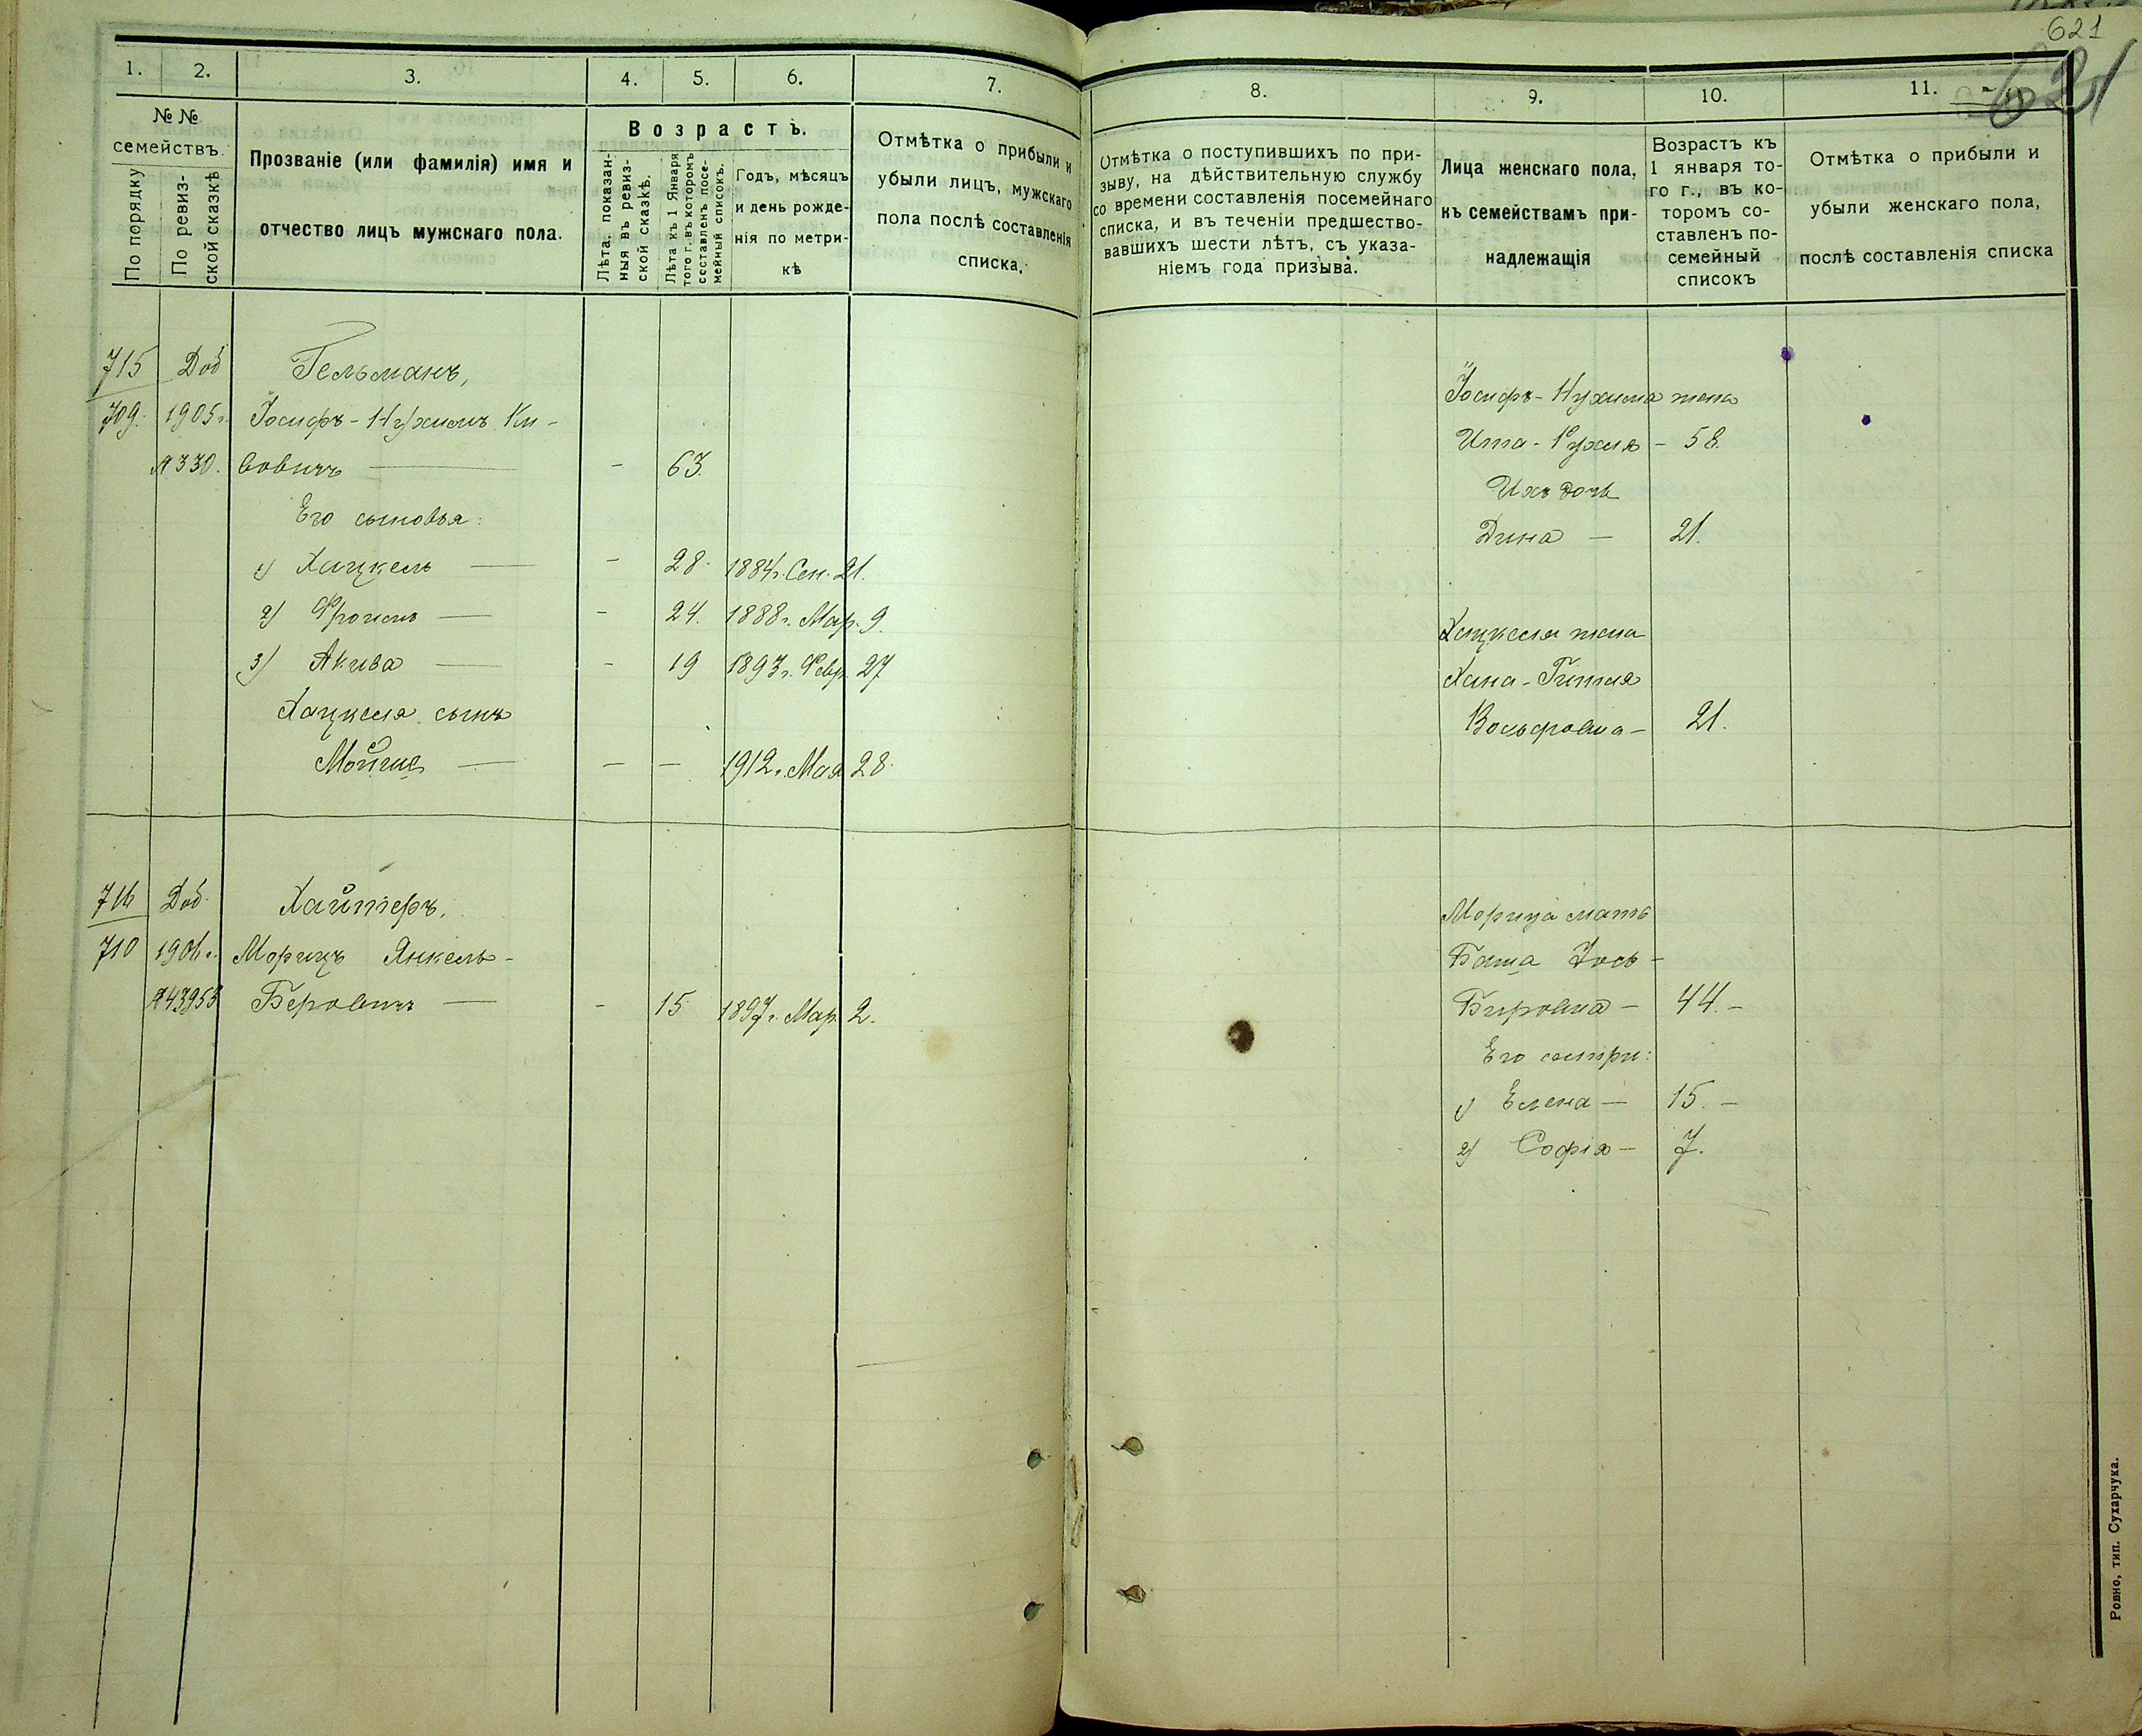 621
621
1. 2. 3. 4. 5. 6. 7.
№ №
семействъ.
По порядку
По ревиз-
ской сказкѣ
Прозваніе (или фамилія) имя и
отчество лицъ мужскаго пола.
Возрастъ.
Лѣта. показан-
ныя въ ревиз-
ской сказкѣ.
Лѣта къ 1 Января
того г. въ которомъ
составленъ посе-
мейный списокъ.
Годъ, мѣсяцъ
и день рожде-
нія по метри-
кѣ
Отмѣтка о прибыли и
убыли лицъ, мужскаго
пола послѣ составленія
списка.
715 Доб Гельманъ,
709. 1905 г. Іосифъ-Нухимъ Ки-
№ 330. вовичъ — - 63.
Его сыновья:
1) Хацкель — - 28. 1884 г. Сен. 21.
2) Фроимъ — - 24. 1888 г. Мар. 9.
3) Акива — - 19 1893 г. Февр. 27
Хацкеля сынъ
Мойше — — — 1912 г. Мая 28.
716 Доб. Хайтеръ.
710 1906 г. Морицъ Янкель-
№ 43953 Беровичъ — - 15 1897 г. Мар. 2.
8. 9. 10. 11.
Отмѣтка о поступившихъ по при-
зыву, на дѣйствительную службу
со времени составленія посемейнаго
списка, и въ теченіи предшество-
вавшихъ шести лѣтъ, съ указа-
ніемъ года призыва.
Лица женскаго пола,
къ семействамъ при-
надлежащія
Возрастъ къ
1 января то-
го г., въ ко-
торомъ со-
ставленъ по-
семейный
списокъ
Отмѣтка о прибыли и
убыли женскаго пола,
послѣ составленія списка
Іосифъ-Нухима жена
Ита-Рухля - 58.
Ихъ дочь
Дина — 21.
Хацкеля жена
Хана-Гитля
Вольфовна - 21.
Морица мать
Баша Іось-
Беровна - 44. -
Его сестры:
1) Елена — 15. -
2) Софія — 7.
Ровно, тип. Сухарчука.